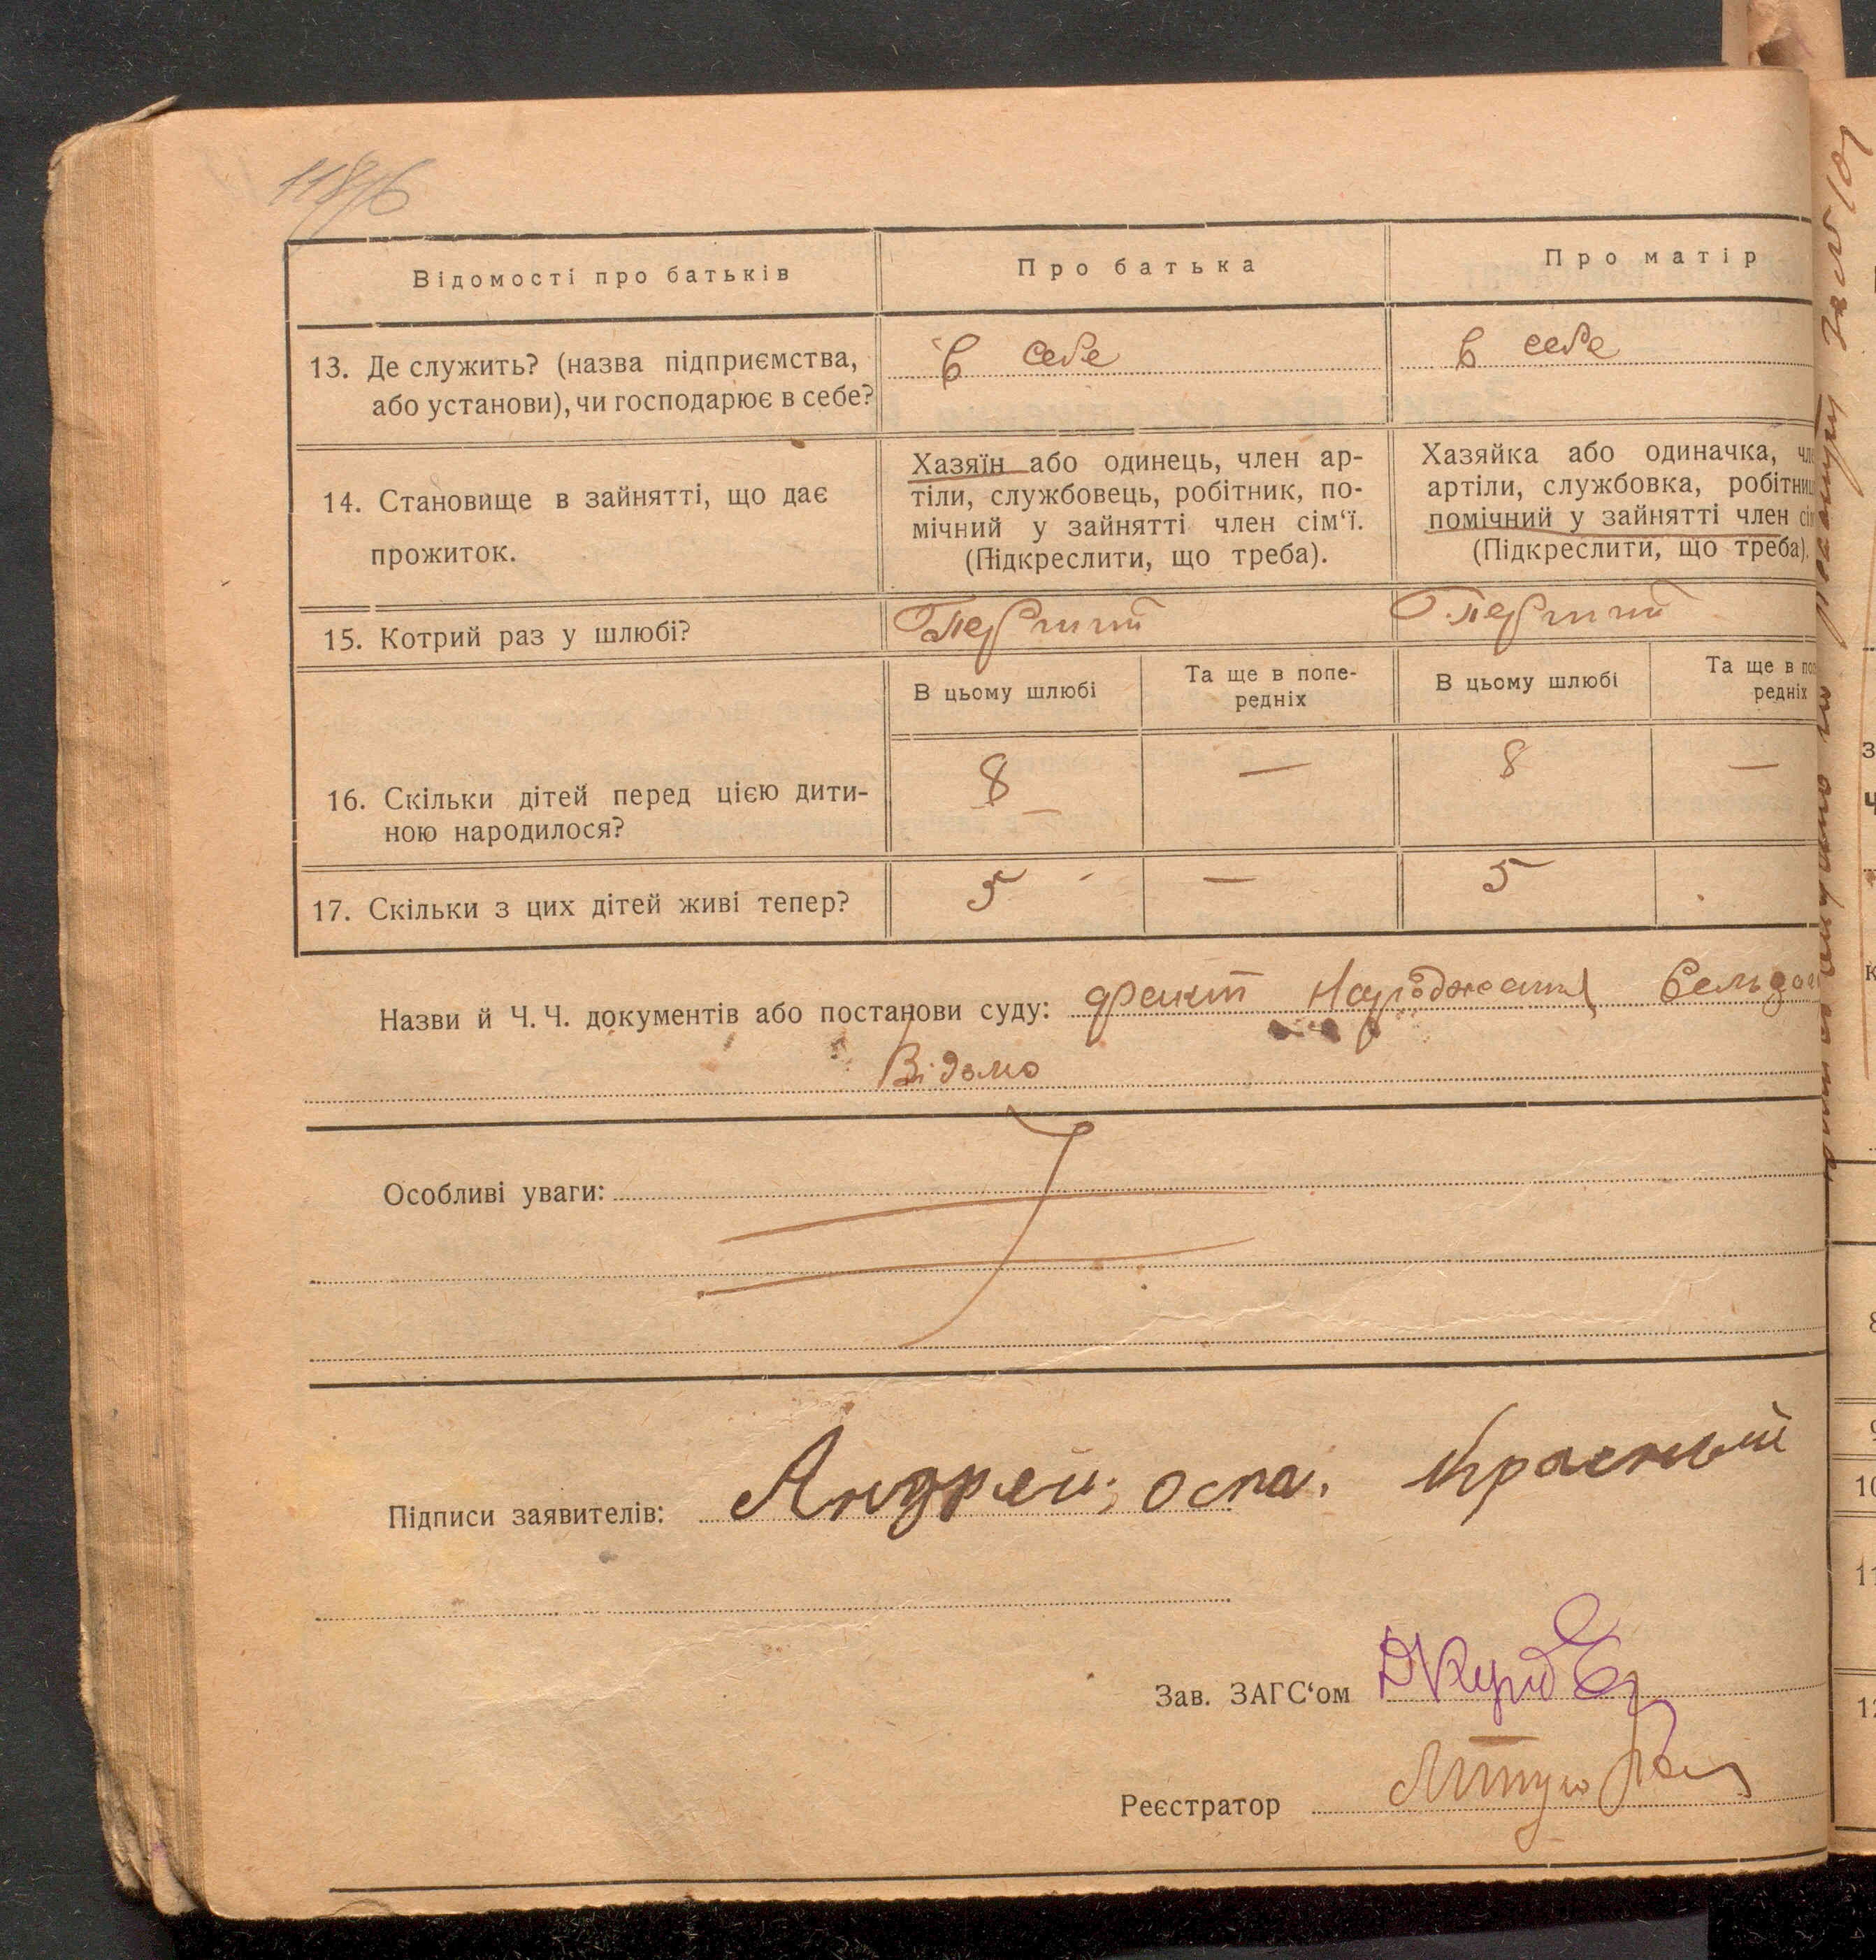 118/б
Відомості про батьків
Про батька
Про матір
13. Де служить? (назва підприємства,
або установи), чи господарює в себе?
в себе
в себе
14. Становище в зайнятті, що дає
прожиток.
Хазяїн або одинець, член ар-
тіли, службовець, робітник, по-
мічний у зайнятті член сім‘ї.
(Підкреслити, що треба).
Хазяйка або одиначка, чле
артіли, службовка, робітниц
помічний у зайнятті член сім
(Підкреслити, що треба).
15. Котрий раз у шлюбі?
Первший
Первший
В цьому шлюбі
Та ще в попе-
редніх
В цьому шлюбі
Та ще в попе-
редніх
16. Скільки дітей перед цією дити-
ною народилося?
8
—
8
—
17. Скільки з цих дітей живі тепер?
5
—
5
Назви й Ч. Ч. документів або постанови суду: факт народження
Відомо
Особливі уваги:
Підписи заявителів: Андрей Красный
Зав. ЗАГС‘ом
Реєстратор